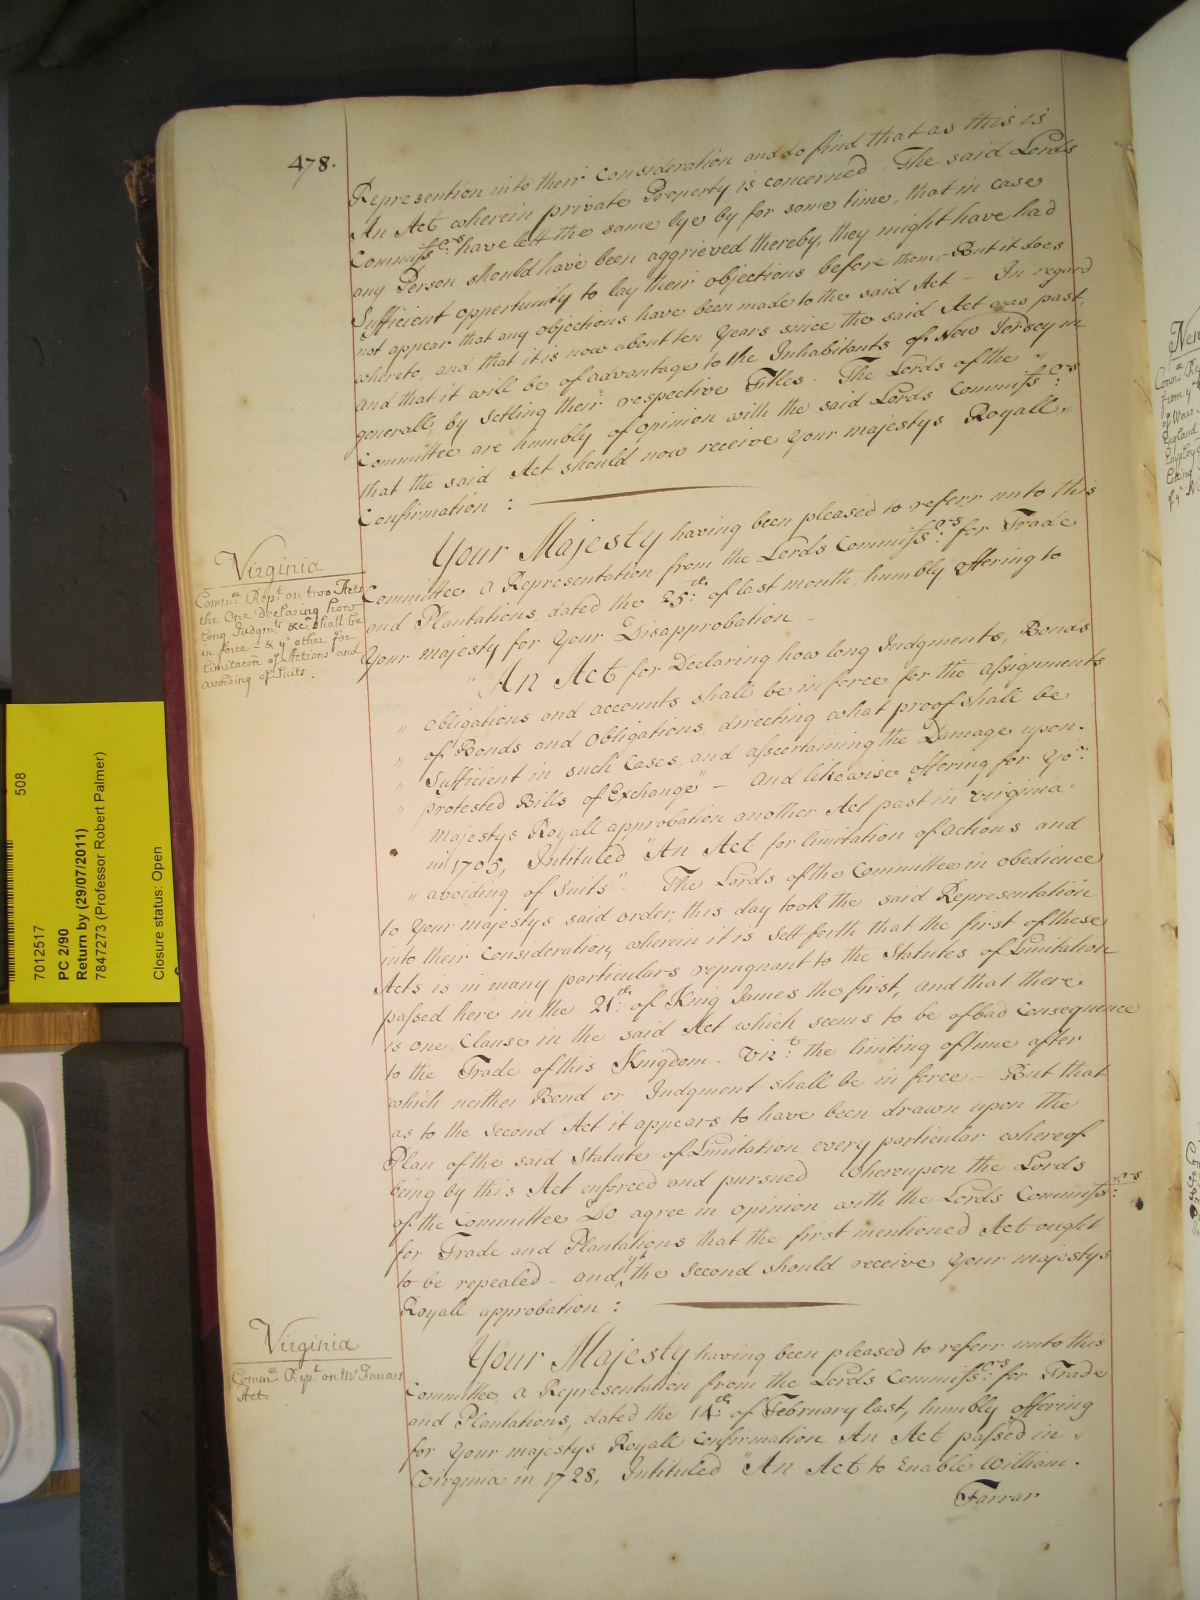 478.
Represention into their Consideration and do find that as this is
An Act wherein private Property is concerned. The said Lords
Commiss.rs have left the same lye by for some time, that in case
any Person should have been aggrieved thereby, they might have had
Sufficient opportunity to lay their objections before them, But it does
not appear that any objections have been made to the said Act - In regard
whereto, and that it is now about ten Years since the said Act was past,
and that it will be of advantage to the Inhabitants of New Jersey in
generall by Setling their respective Titles. The Lords of the
Committee are humbly of opinion with the said Lords Commiss.rs
that the said Act should now receive Your Majestys Royall
Confirmation :
Virginia
Comm.ee Rep.t on two Acts
the One Declaring how
long Judgm.ts &c.a shall be
in force - & y.e other for
limitacon of Actions and
avoiding of Suits.
Your Majesty having been pleased to referr unto this
Committee, a Representation from the Lords Commiss.rs for Trade
and Plantations, dated the 25.th of last month, humbly offering to
Your Majesty for Your Disapprobation -
" An Act for Declaring how long Judgments, Bonds
" obligations and accounts shall be in force for the assignments
" of Bonds and obligations, directing what proof shall be
" Sufficient in such Cases, and ascertaining the Damage upon
" protested Bills of Exchange" - And likewise offering for Yo.r
Majestys Royall approbation another Act past in Virginia
in 1705, Intituled "An Act for limitation of actions and
" avoiding of Suits". The Lords of the Committee in obedience
to Your Majestys said order, this day took the said Representation
into their Consideration, wherein it is Sett forth that the first of these
Acts is in many particulars repugnant to the Statutes of Limitation
passed here in the 21.th of King James the first, and that there
is one Clause in the said Act which seems to be of bad Consequence
to the Trade of this Kingdom - Viz.t the limiting of time after
which neither Bond or Judgment shall be in force - But that
as to the Second Act it appears to have been drawn upon the
Plan of the said Statute of Limitation every particular whereof
being by this Act enforced and pursued Whereupon the Lords
of the Committee Do agree in opinion with the Lords Commiss.rs
for Trade and Plantations that the first mentioned Act ought
to be repealed - and y.t the Second should receive Your Majestys
Royall approbation :
Virginia
Comm.ee Rep.t on Mr Farrars
Act.
Your Majesty having been pleased to referr unto this
Committee, a Representation from the Lords Commiss.rs for Trade
and Plantations, dated the 14.th of February last, humbly offering
for Your Majestys Royall Confirmation An Act passed in
Virginia in 1728, Intituled "An Act to Enable William
Farrar
508
7012517
PC 2/90
Return by (29/07/2011)
7847273 (Professor Robert Palmer)
Closure status: Open